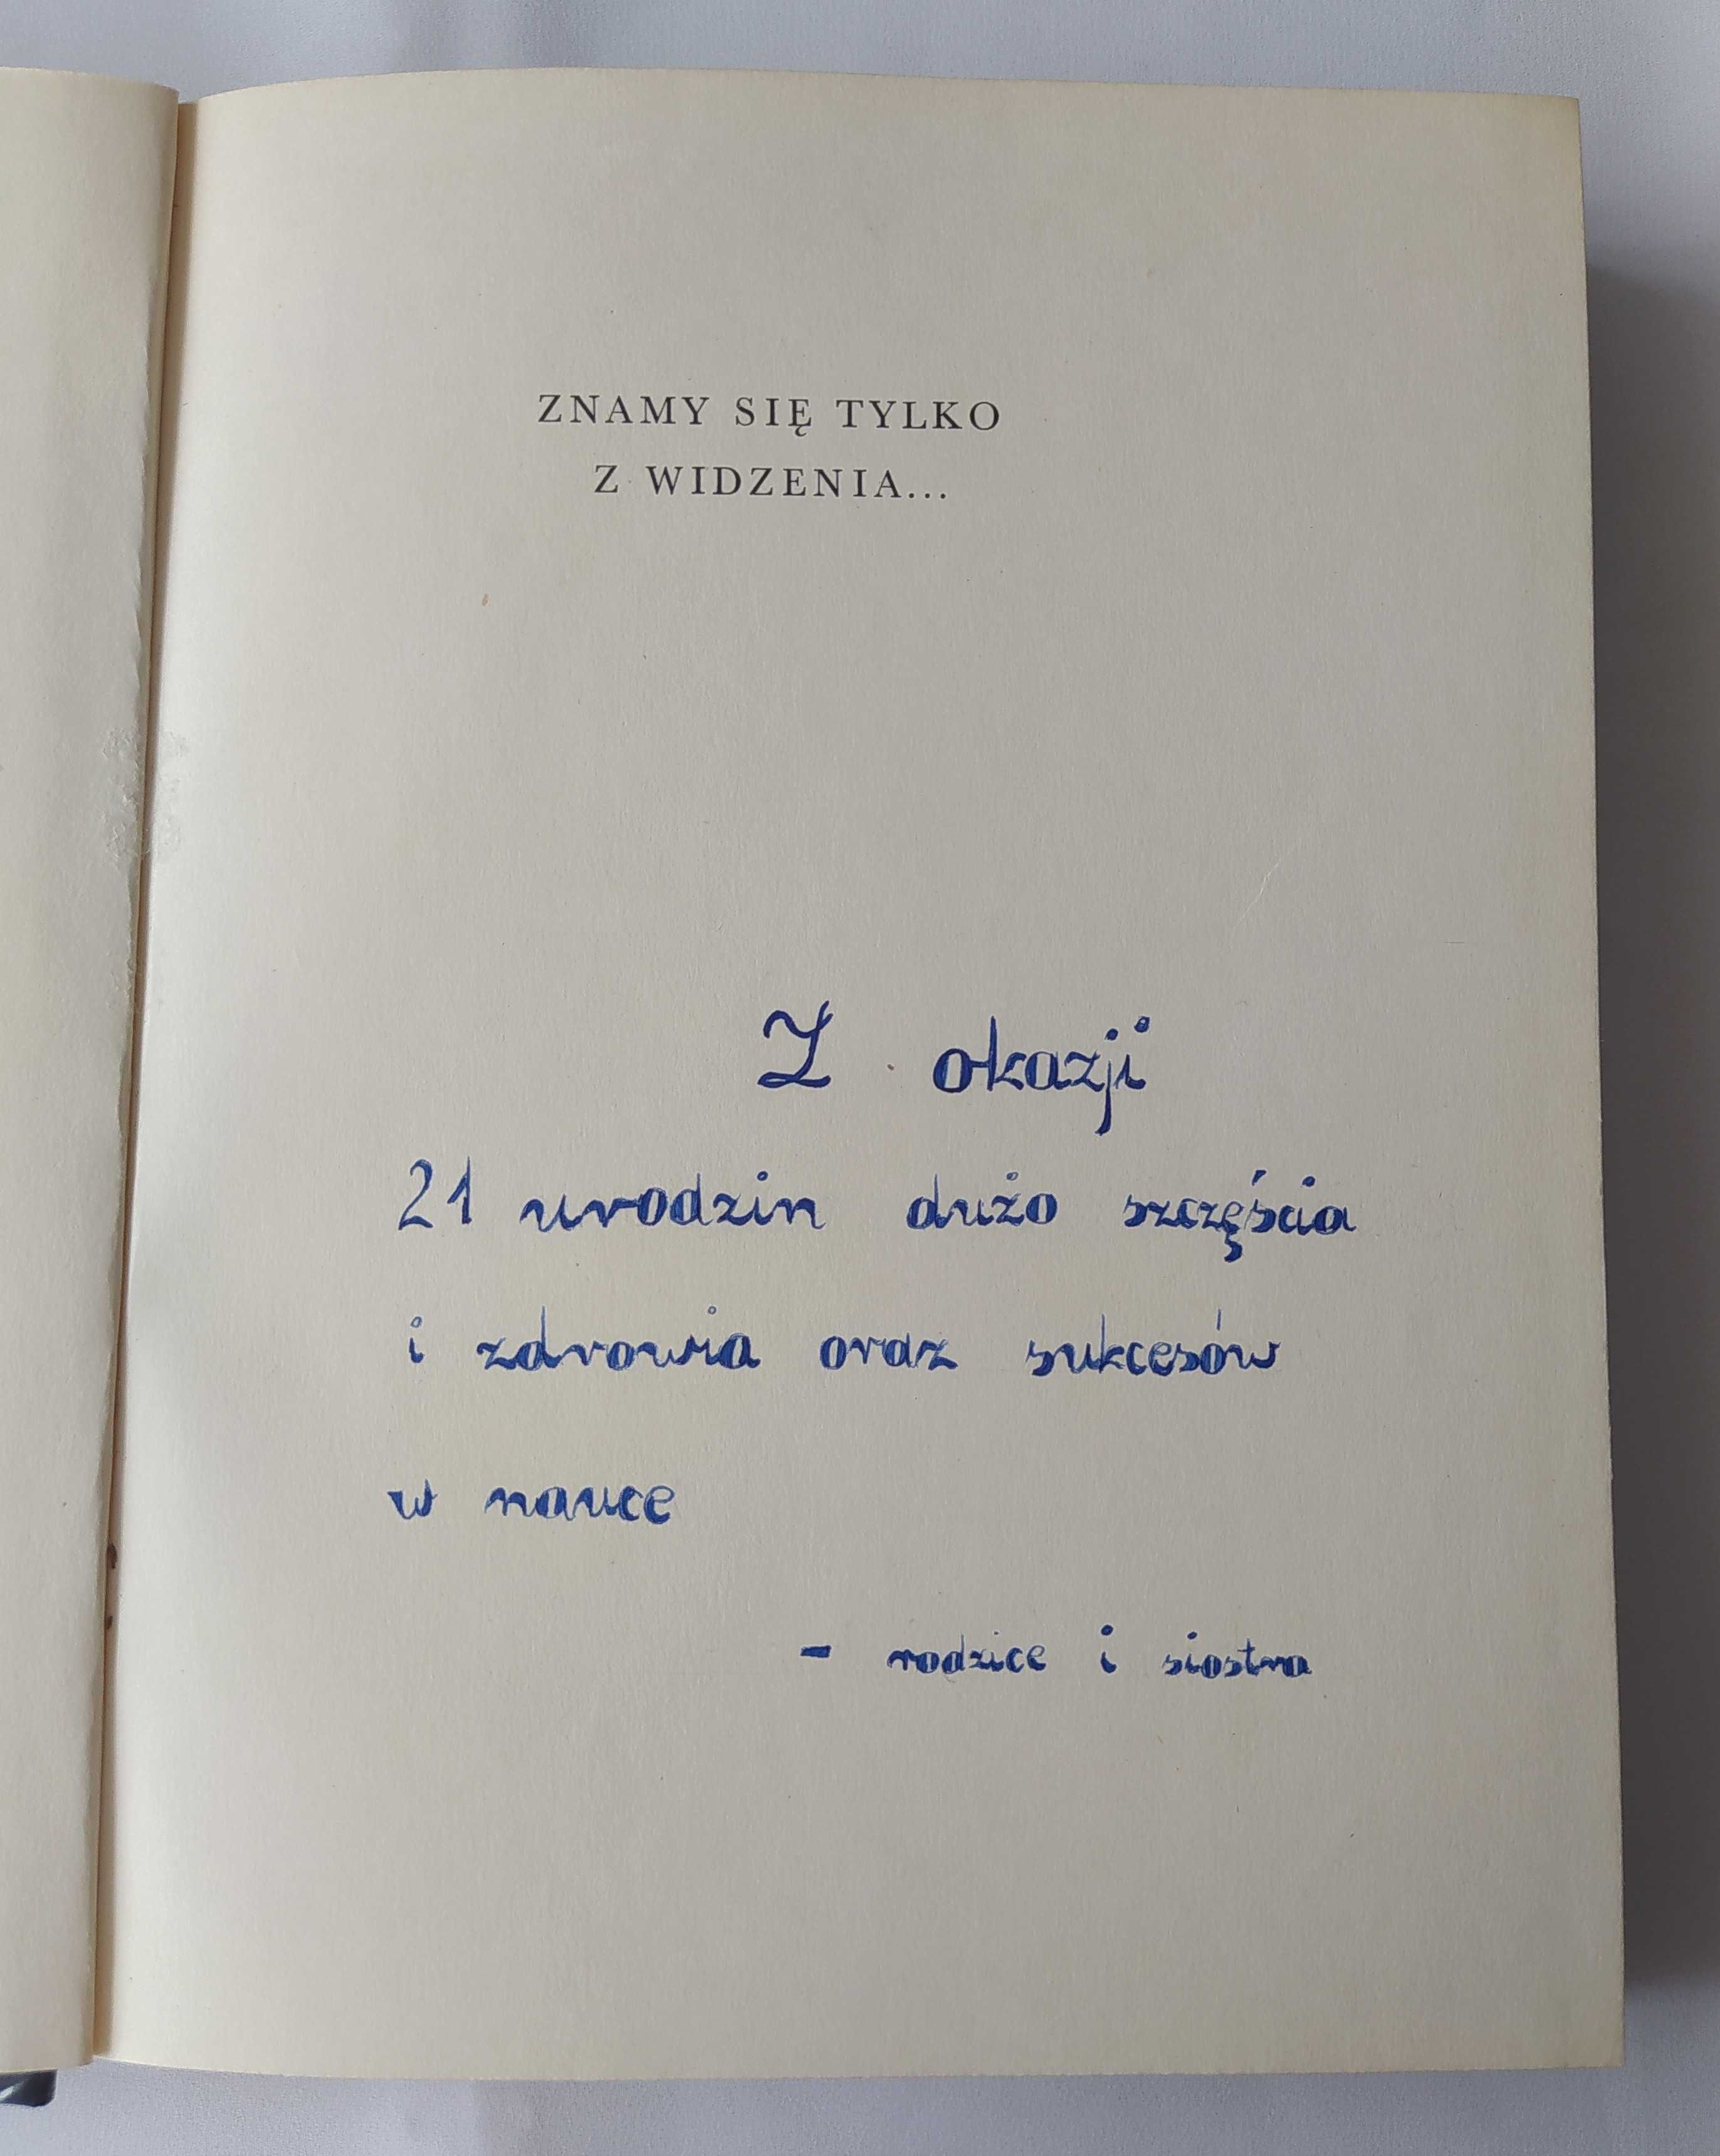 ZNAMY SIĘ TYLKO
Z WIDZENIA...
Z okazji
21 urodzin dużo szczęścia
i zdrowia oraz sukcesów
w nauce
- rodzice i siostra